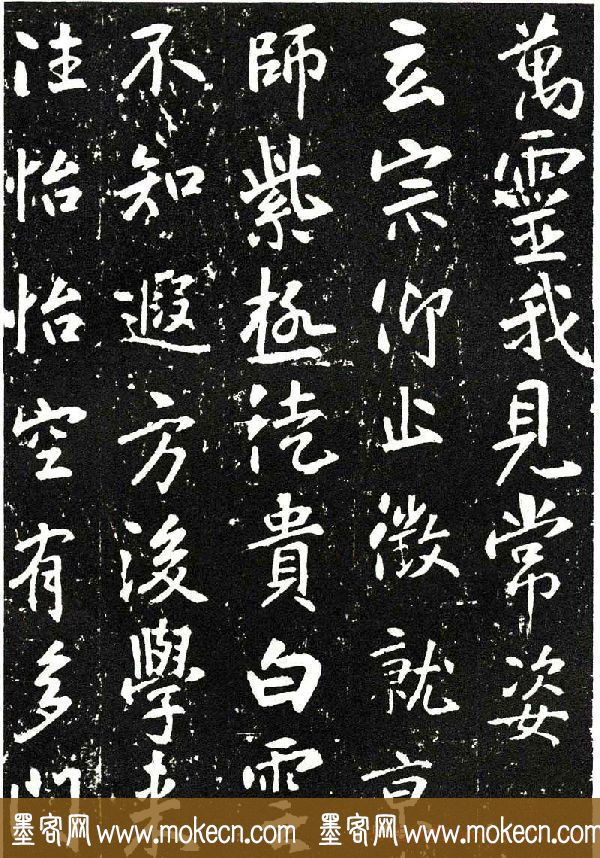 萬靈我見常姿
玄宗仰止徵就京
師紫極徒貴白雲
不知遐方後學來
往怡怡空有多門
墨客网 www.mokecn.com 墨客网 www.mokecn.com